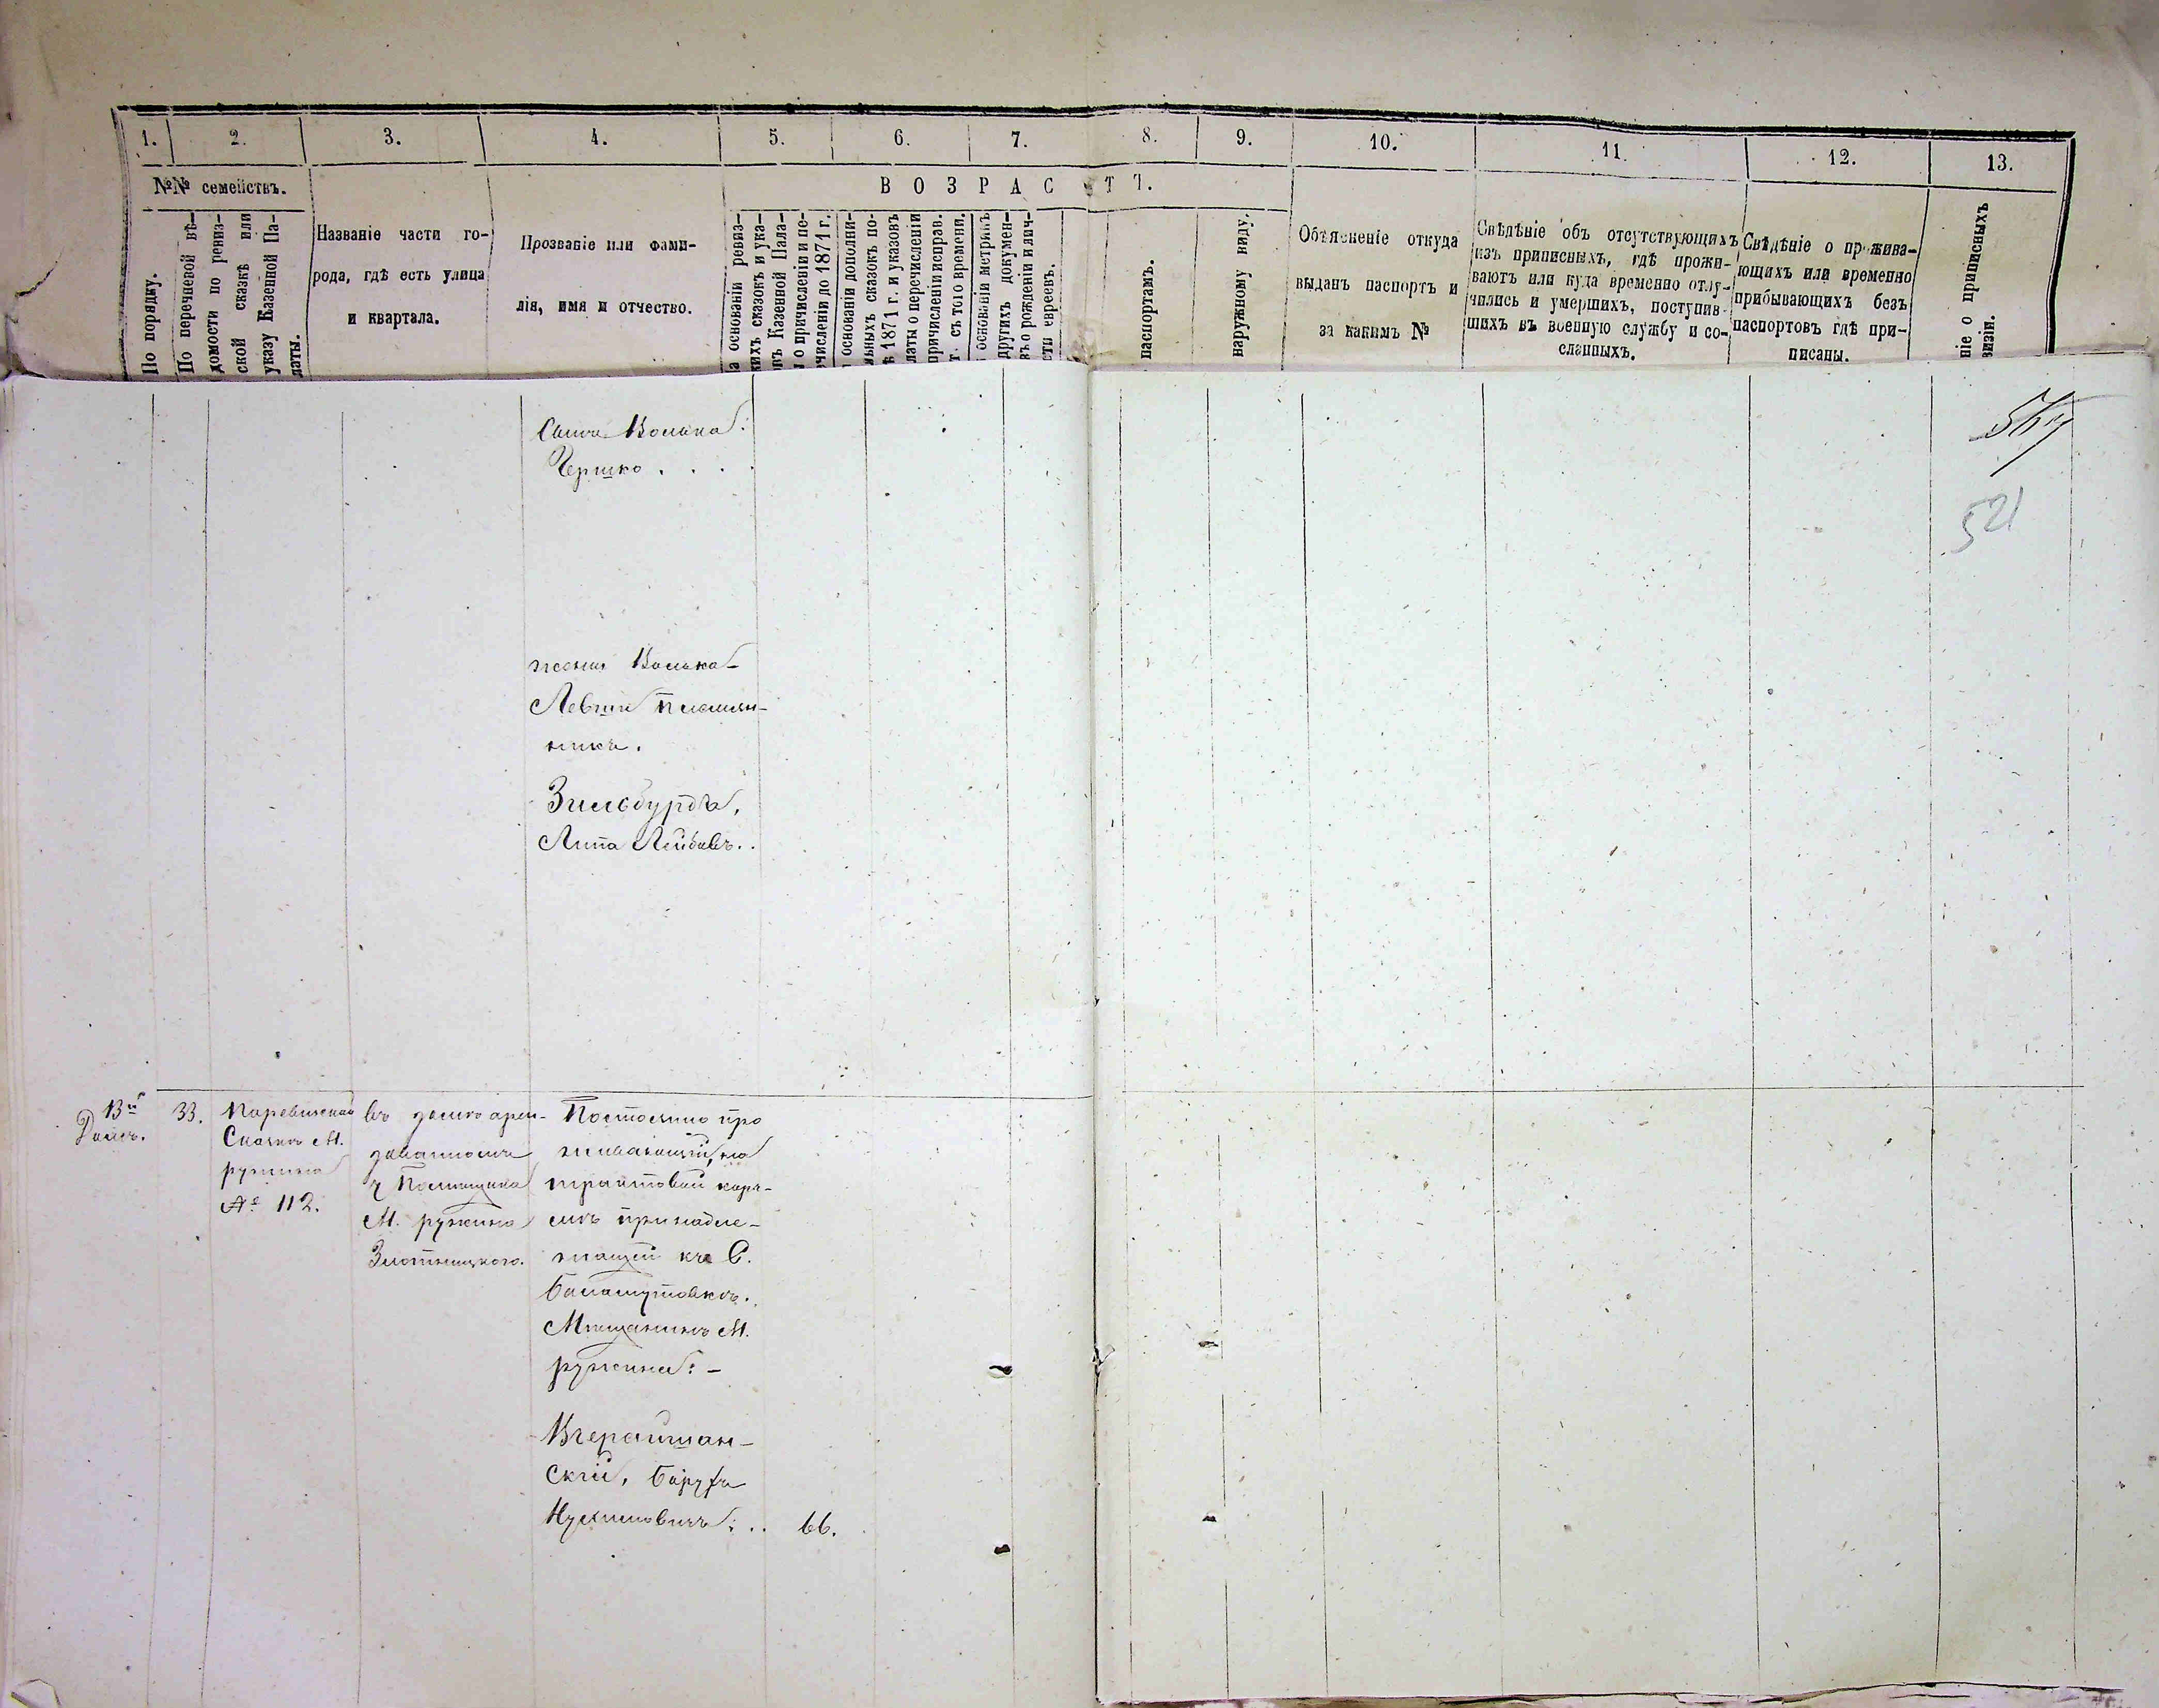 1. 2. 3. 4. 5. 6. 7. 8. 9. 10. 11. 12. 13.
№№ семействъ.
ВОЗРАСТЪ.
По порядку.
По перечневой вѣ-
домости по ревиз-
ской сказкѣ или
указу Казенной Па-
латы.
Названіе части го-
рода, гдѣ есть улица
и квартала.
Прозваніе или фами-
лія, имя и отчество.
а основаніи ревиз-
кихъ сказокъ и ука-
овъ Казенной Пала-
о причисленіи и пе-
ечисленіи до 1871 г.
основаніи дополни-
ьныхъ сказокъ по-
ѣ 1871 г. и указовъ
латы о перечисленіи
причисленіи исправ.
т. съ того времени.
основаніи метрикъ
другихъ докумен-
въ о рожденіи и лич-
сти евреевъ.
паспортамъ.
наружному виду.
Объясненіе откуда
выданъ паспортъ и
за какимъ №
Свѣдѣніе объ отсутствующихъ
изъ приписныхъ, гдѣ прожи-
ваютъ или куда временно отлу-
чились и умершихъ, поступив-
шихъ въ военную службу и со-
сланныхъ.
Свѣдѣніе о прожива-
ющихъ или временно
прибывающихъ безъ
паспортовъ гдѣ при-
писаны.
ніе о приписныхъ
визіи.
521
Сынъ Волька:
Гершко . . . .
жена Волька
Левши племян-
никъ.
Липа Лейбовъ..
13й
Домъ.
33.
Скачкѣ М.
ружина
№ 112.
въ домѣ арен-
дованномъ
у Помѣщика
М. ружина
Злотницкого.
Постоянно про
живающій, на
трактовой корч-
мѣ принадле-
жащей къ С.
Баламутовкѣ.
Мѣщанинъ М.
ружина: -
Вчерайшан-
скій, Барухъ
Нухимовичъ: .. 66.